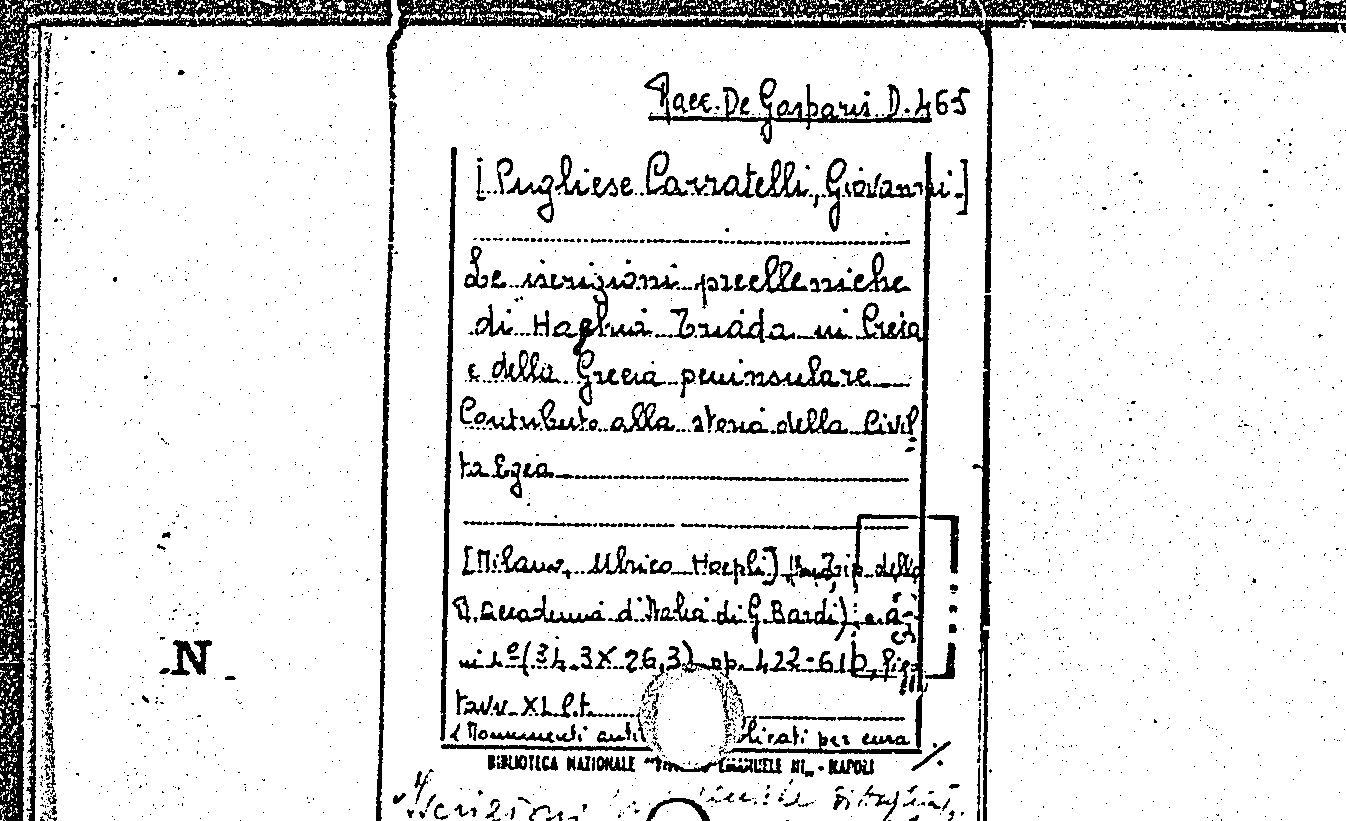 Racc. De Gasparis D. 465
[Pugliese Carratelli, Giovanni.]
Le iscrizioni preelleniche
di Haghia Triada in Creta
e della Grecia peninsulare
Contributo alla storia della Civil
tà Egea
[Milano, Ulrico Hoepli] Tip. della
R. Accademia d'Italia di G. Bardi)
in 4º (34.3X26,3) pp. 422-610, figg.
tavv. XL f.t.
N
BIBLIOTECA NAZIONALE EMANUELE III - NAPOLI
Iscrizioni